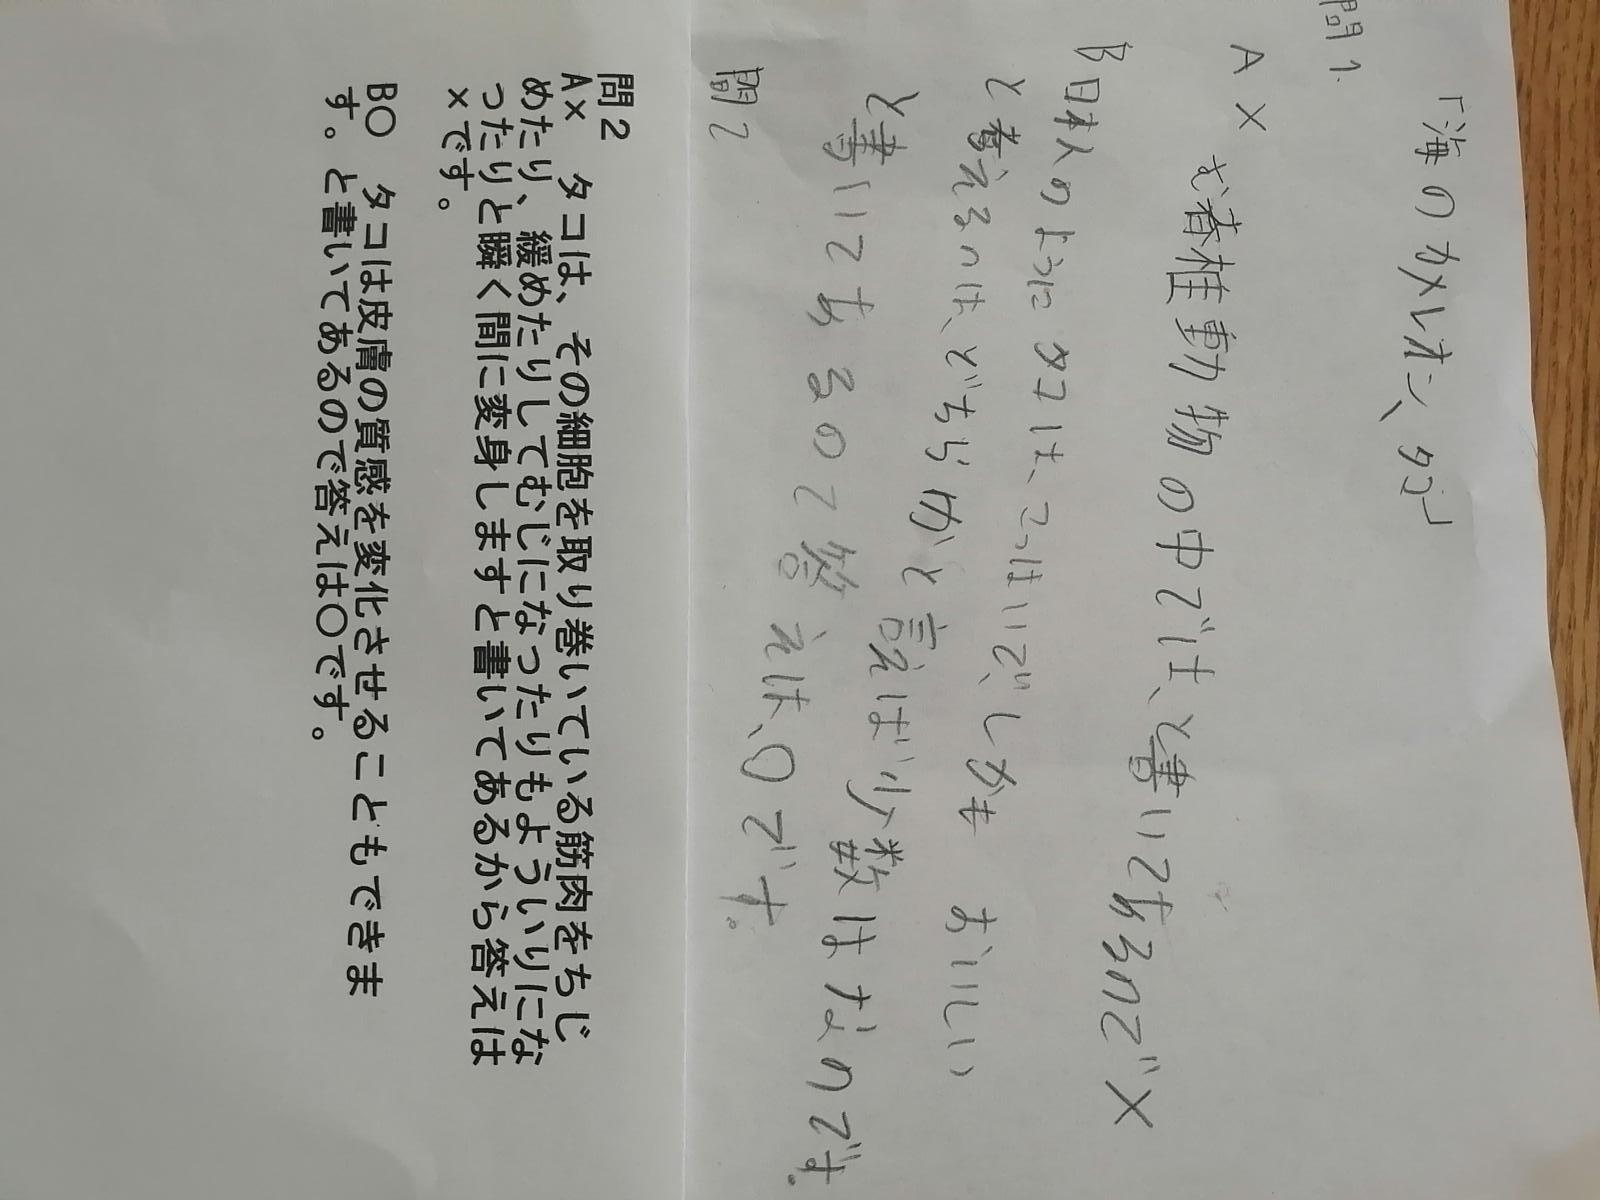 問1.
「海のカメレオン、タコ」
A ×
む脊椎動物の中では、と書いてあるので×
B 日本人のようにタコは、こっけいで、しかも おいしい
と考えるのは、どちらかと言えば少数はなのです。
と書いてあるので答えは、○です。
問2
問2
A× タコは、その細胞を取り巻いている筋肉をちじ
めたり、緩めたりしてむじになったりもよういりにな
ったりと瞬く間に変身しますと書いてあるから答えは
×です。
B○ タコは皮膚の質感を変化させることもできま
す。と書いてあるので答えは○です。